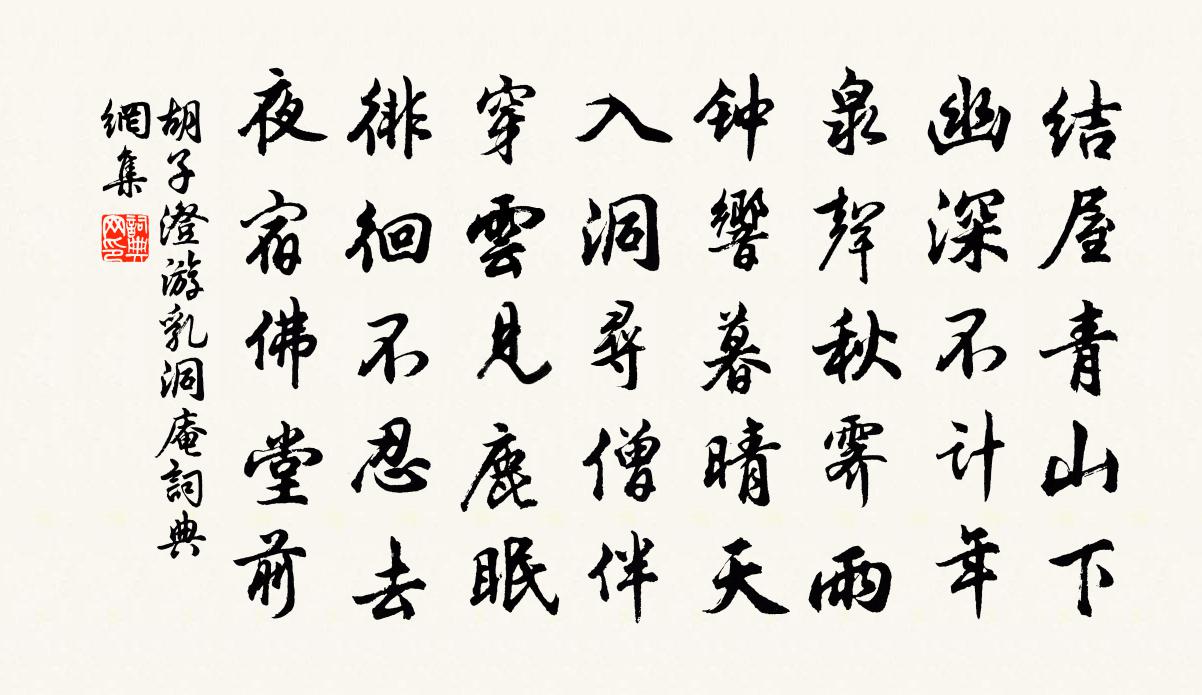 结屋青山下
幽深不计年
泉聲秋霽雨
钟響暮晴天
入洞尋僧伴
穿雲見鹿眠
徘徊不忍去
夜宿佛堂前
胡子澄游乳洞庵詞典
網集
詞典網印